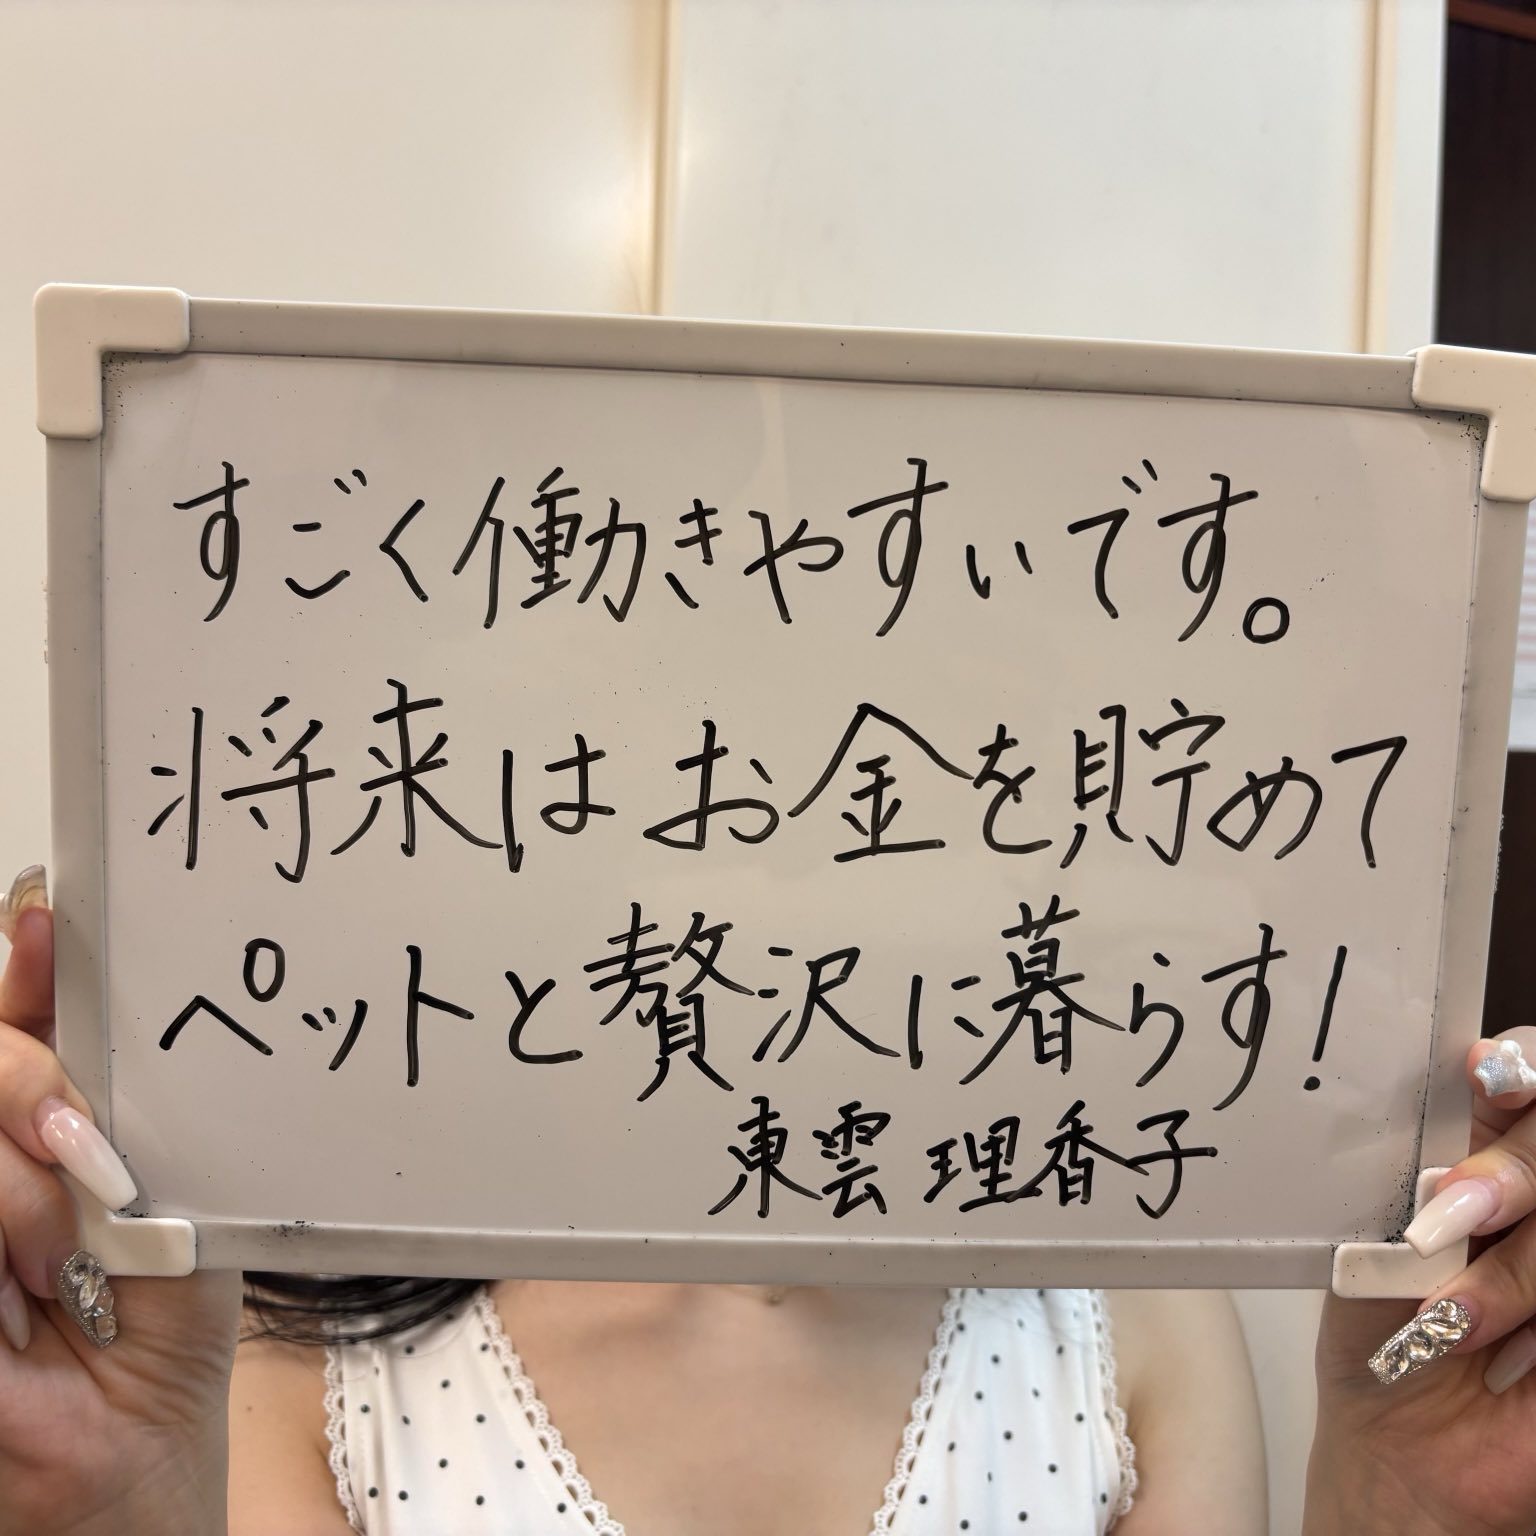 すごく働きやすいです。
将来はお金を貯めて
ペットと贅沢に暮らす!
東雲 理香子